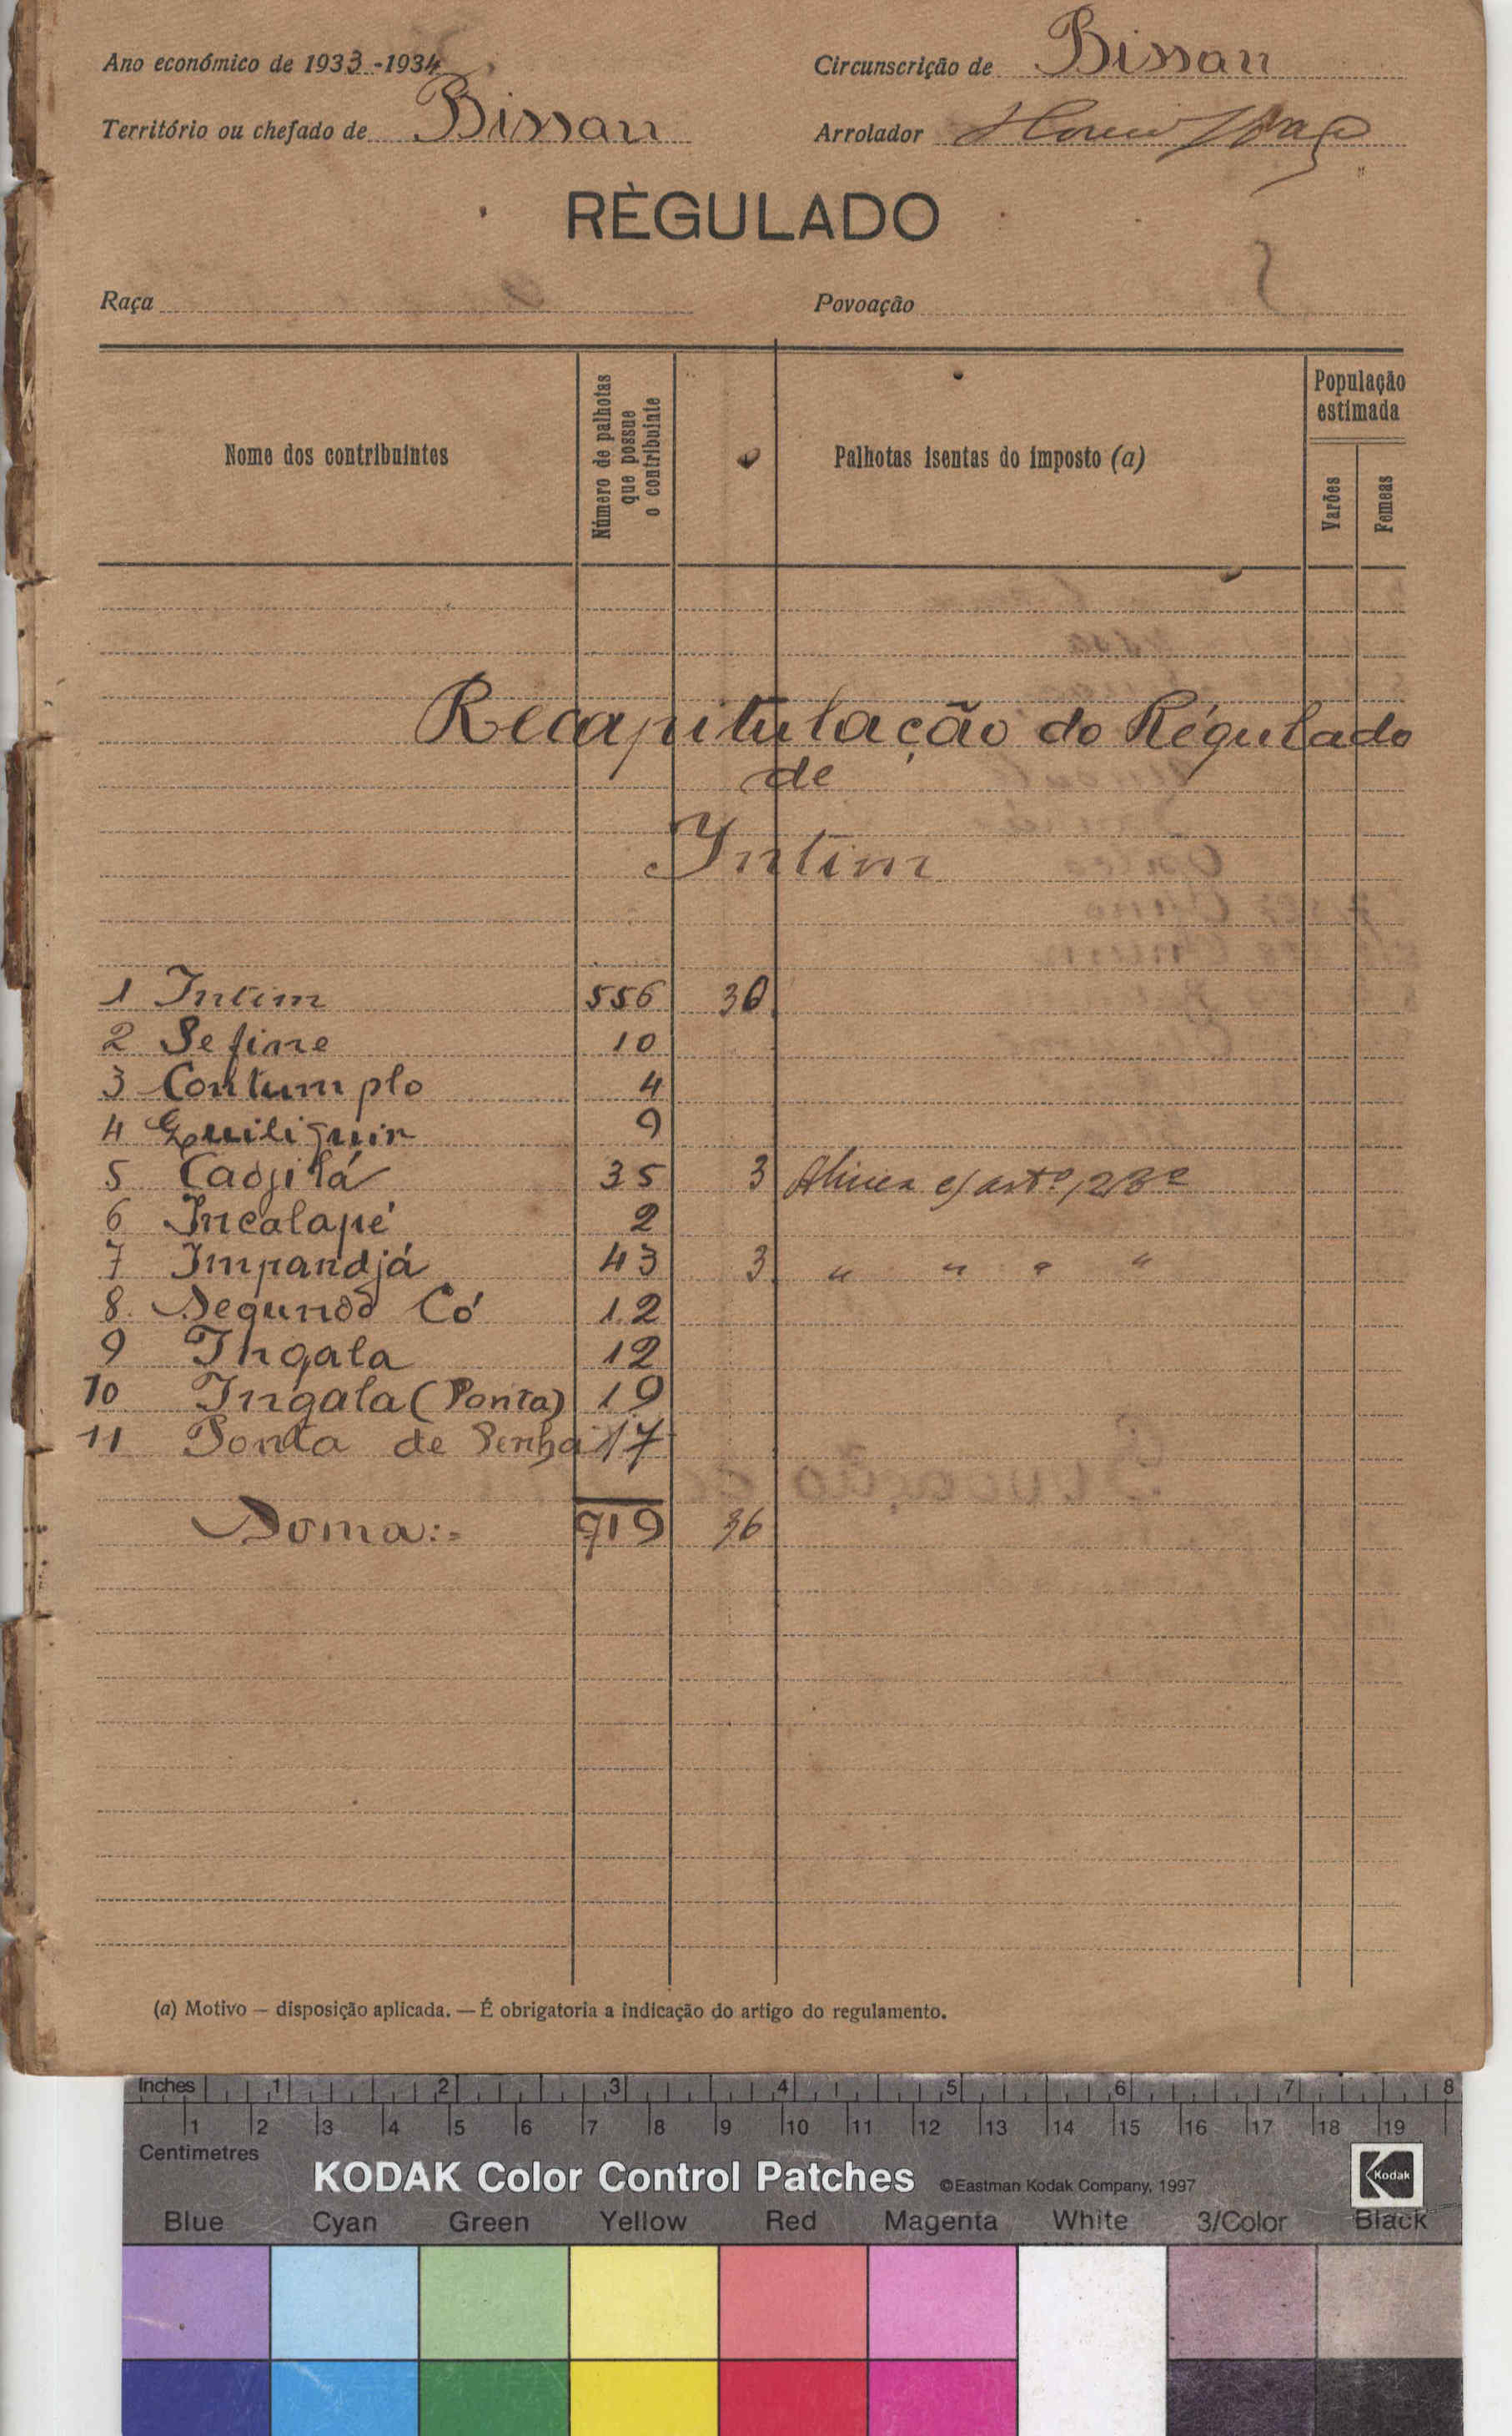 Ano económico de 1933-1934
Circunscrição de Bissau
Território ou chefado de Bissau
Arrolador
RÈGULADO
Raça
Povoação
Nome dos contribuintes
Número de palhotas que possue o contribuinte
Palhotas isentas do imposto (a)
População estimada
Varões
Femeas
Recapitulação do Régulado
de
Intim
1 Intim 556 30
2 Sefine 10
3 Contumplo 4
4 Quiliguir 9
5 Cadjilá 35 3 Alinea c/ artº 23º
6 Incalapé 2
7 Impandjá 43 3 " " " "
8 Segundo Có 12
9 Ingala 12
10 Ingala (Ponta) 19
11 Ponta de Penha 17
Soma:= 719 36
(a) Motivo — disposição aplicada. — É obrigatoria a indicação do artigo do regulamento.
Inches 1 2 3 4 5 6 7 8
1 2 3 4 5 6 7 8 9 10 11 12 13 14 15 16 17 18 19
Centimetres
KODAK Color Control Patches ©Eastman Kodak Company, 1997 Kodak
Blue Cyan Green Yellow Red Magenta White 3/Color Black